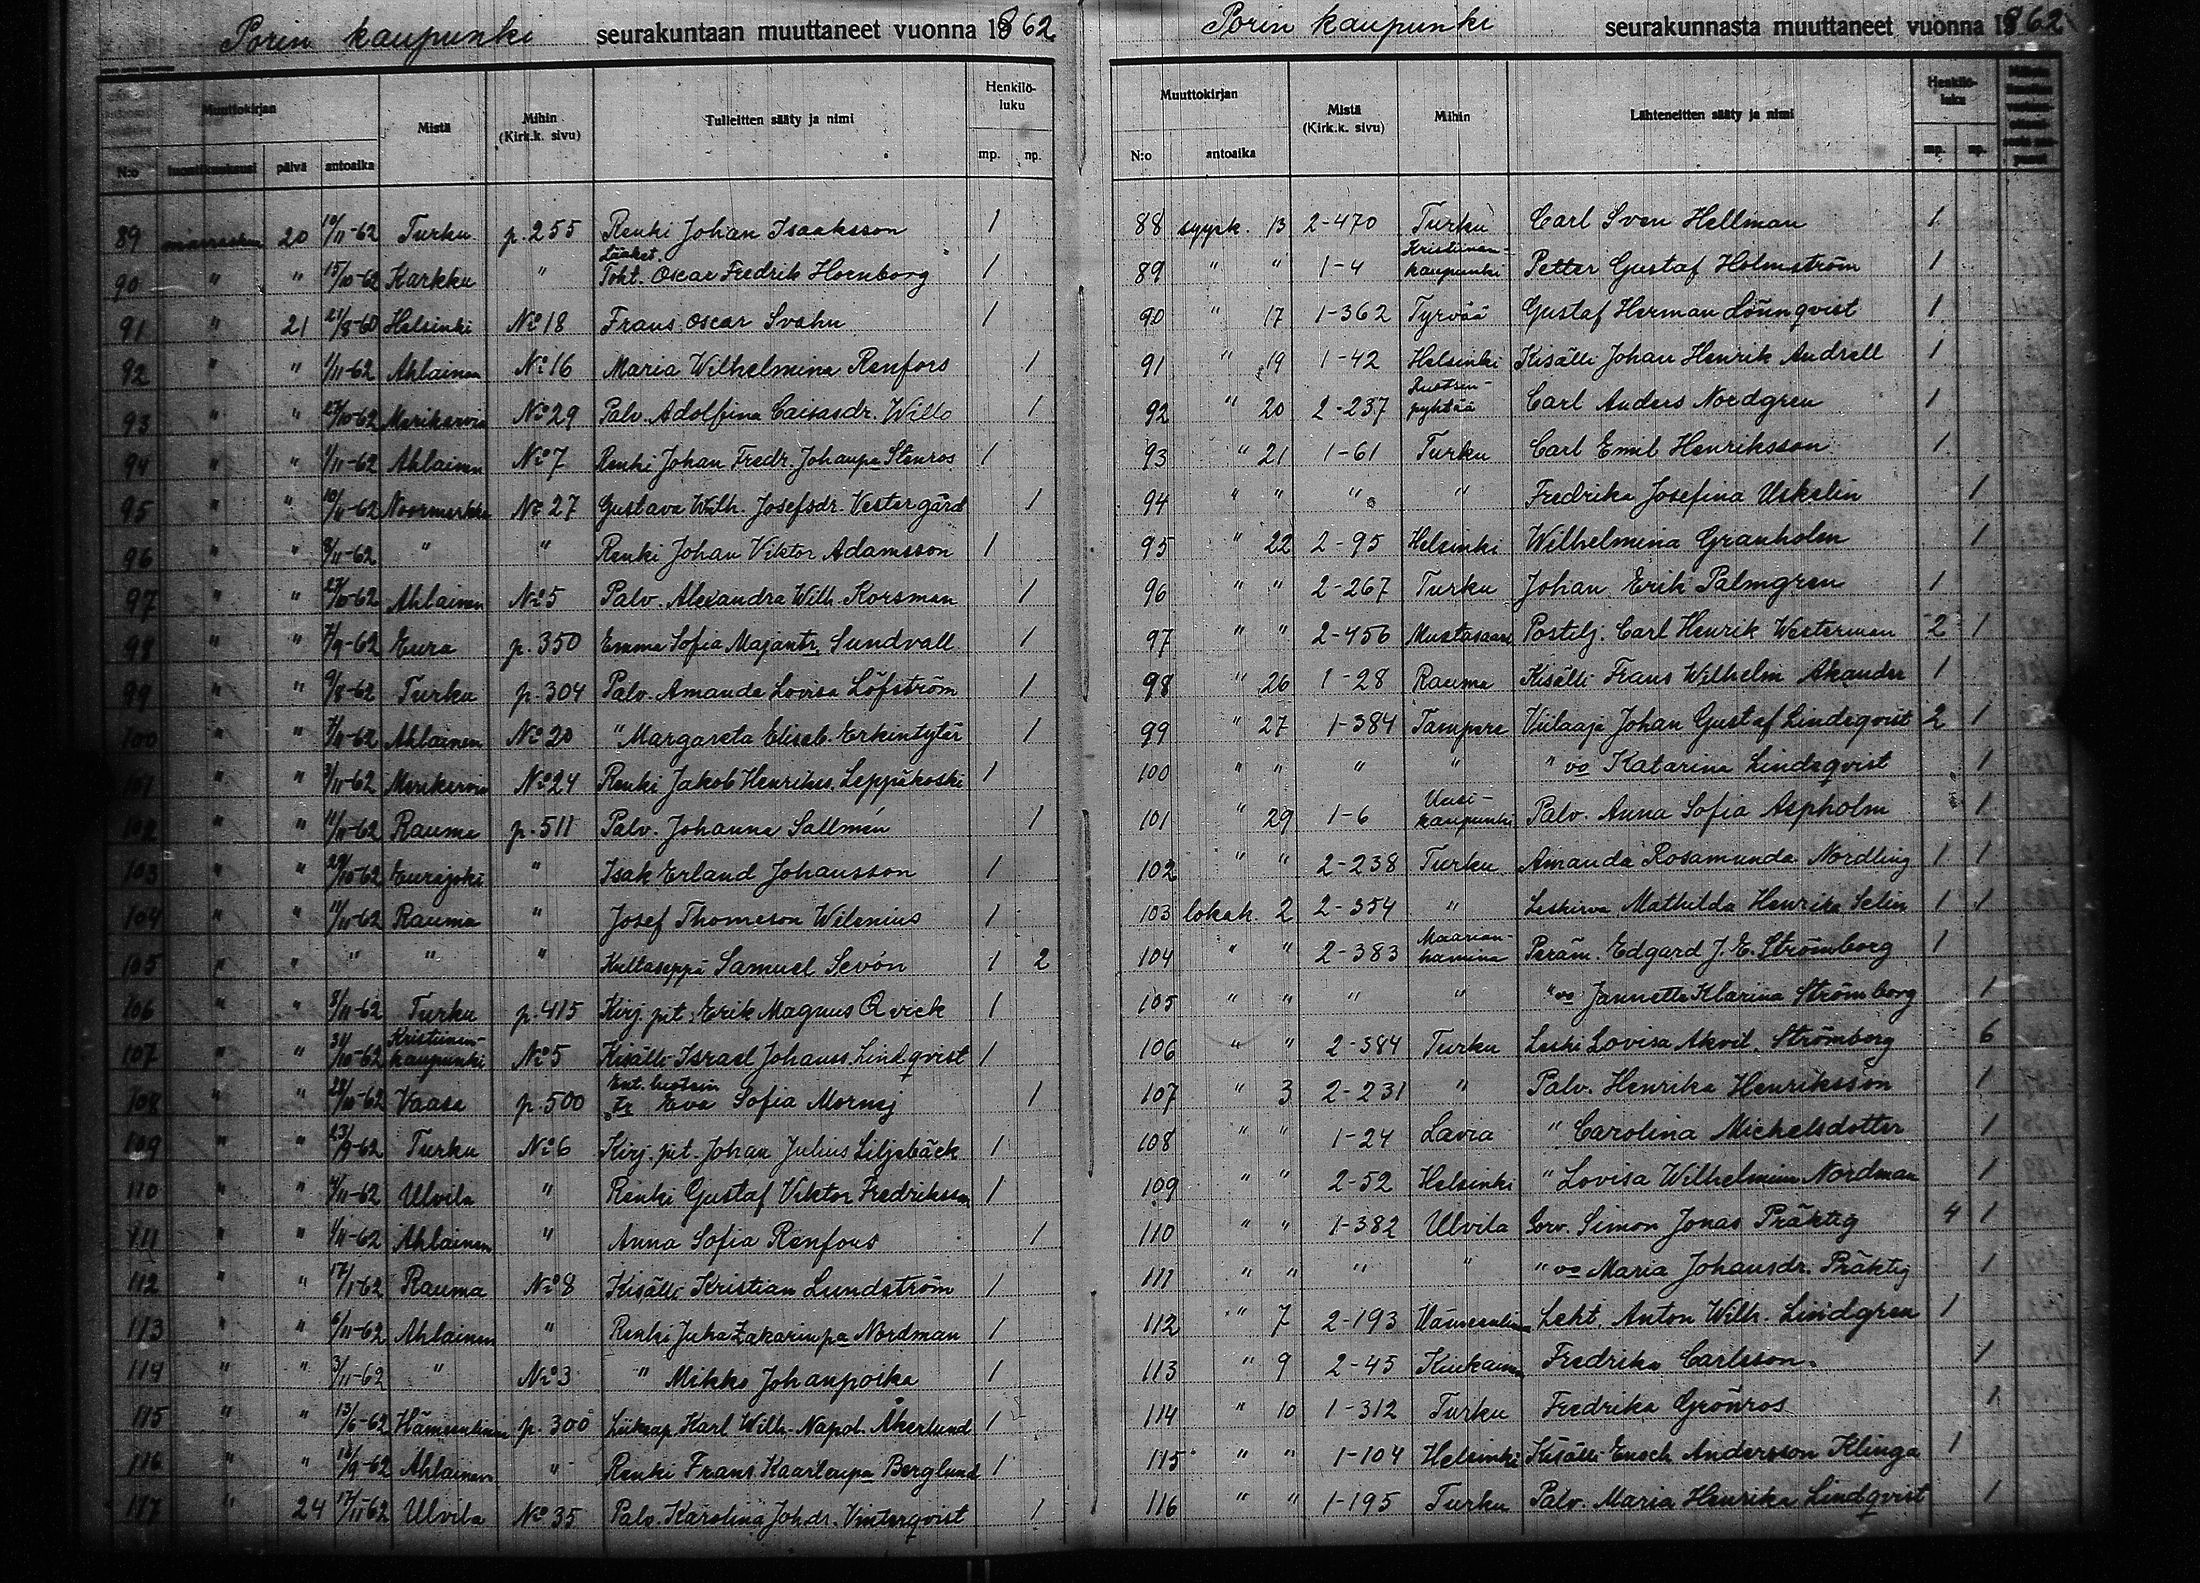 Porin kaupunki seurakuntaan muuttaneet vuonna 1862
Muuttokirjan Mistä Mihin (Kirk.k. sivu) Tulleitten sääty ja nimi Henkilöluku
N:o päivä antoaika mp. np.
89 marraskuu 20 10/11-62 Turku p. 255 Renki Johan Isaaksson 1
90 " " 15/10-62 Karkku " Lääket. Toht. Oscar Fredrik Hornborg 1
91 " 21 21/8-60 Helsinki No 18 Frans Oscar Svahn 1
92 " " 1/11-62 Ahlainen No 16 Maria Wilhelmina Renfors 1
93 " " 27/10-62 Merikarvia No 29 Palv. Adolfina Caisasdr. Willo 1
94 " " 1/11-62 Ahlainen No 7 Renki Johan Fredr. Johanpa Stenros 1
95 " " 10/11-62 Noormarkku No 27 Gustava Wilh. Josefsdr. Vestergård 1
96 " " 8/11-62 " " Renki Johan Viktor Adamsson 1
97 " " 27/10-62 Ahlainen No 5 Palv. Alexandra Wilh. Korsman 1
98 " " 7/9-62 Eura p. 350 Emma Sofia Majantr. Sundvall 1
99 " " 9/8-62 Turku p. 304 Palv. Amanda Lovisa Löfström 1
100 " " 7/11-62 Ahlainen No 20 " Margareta Elisab. Erkintytär 1
101 " " 3/11-62 Merikarvia No 24 Renki Jakob Henrikus. Leppäkoski 1
102 " " 11/11-62 Rauma p. 511 Palv. Johanna Sallmén 1
103 " " 29/10-62 Eurajoki " Isak Erland Johansson 1
104 " " 11/11-62 Rauma " Josef Thomsson Wilenius 1
105 " " " " " Kultaseppä Samuel Sevón 1 2
106 " " 8/11-62 Turku p. 415 Kirj. pit. Erik Magnus Qvick 1
107 " " 31/10-62 Kristiinankaupunki No 5 Kisälli Israel Johanss. Lindqvist 1
108 " " 28/10-62 Vaasa p. 500 Ent. luotsin Tr Eva Sofia Mornej 1
109 " " 23/9-62 Turku No 6 Kirj. pit. Johan Julius Liljebäck 1
110 " " 4/11-62 Ulvila " Renki Gustaf Viktor Fredriksson 1
111 " " 1/11-62 Ahlainen " Anna Sofia Renfors 1
112 " " 17/1-62 Rauma No 8 Kisälli Kristian Lundström 1
113 " " 6/11-62 Ahlainen " Renki Juha Zakarinpa Nordman 1
114 " " 3/11-62 " No 3 " Mikko Johanpoika 1
115 " " 13/6-62 Hämeenlinna p. 300 Liikeap. Karl Wilh. Napol. Åkerlund 1
116 " " 18/9-62 Ahlainen " Renki Frans Kaarlenpa Berglund 1
117 " 24 17/11-62 Ulvila No 35 Palv. Karolina Joh.dr. Vinterqvist 1
Porin kaupunki seurakunnasta muuttaneet vuonna 1862
Muuttokirjan Mistä (Kirk.k. sivu) Mihin Lähteneitten sääty ja nimi Henkilöluku
N:o antoaika mp. np.
88 syysk. 13 2-470 Turku Carl Sven Hellman 1
89 " " 1-4 Kristiinankaupunki Petter Gustaf Holmström 1
90 " 17 1-362 Tyrvää Gustaf Herman Lönnqvist 1
91 " 19 1-42 Helsinki Kisälli Johan Henrik Andrell 1
92 " 20 2-237 Ruotsinpyhtää Carl Anders Nordgren 1
93 " 21 1-61 Turku Carl Emil Henriksson 1
94 " " " " Fredrika Josefina Uskelin 1
95 " 22 2-95 Helsinki Wilhelmina Granholm 1
96 " " 2-267 Turku Johan Erik Palmgren 1
97 " " 2-456 Mustasaari Postilj. Carl Henrik Westerman 2 1
98 " 26 1-28 Rauma Kisälli Frans Wilhelm Akander 1
99 " 27 1-384 Tampere Viilaaja Johan Gustaf Lindeqvist 2 1
100 " " " " " vo Katarina Lindeqvist 1
101 " 29 1-6 Uusikaupunki Palv. Anna Sofia Aspholm 1
102 " " 2-238 Turku Amanda Rosamunda Nordling 1 1
103 lokak 2 2-354 " Leskirva Mathilda Henrika Selin 1 1
104 " " 2-383 Maarianhamina Peräm. Edgard J. E. Strömborg 1
105 " " " " " vo Jannette Klarina Strömborg 1
106 " " 2-384 Turku Leski Lovisa Akvil. Strömborg 6
107 " 3 2-231 " Palv. Henrika Henriksson 1
108 " " 1-24 Lavia " Carolina Michelsdotter 1
109 " " 2-52 Helsinki " Lovisa Wilhelmina Nordman 1
110 " " 1-382 Ulvila Sorv. Simon Jonas Präktig 4 1
111 " " " " " vo Maria Johansdr. Präktig 1
112 " 7 2-193 Hämeenlinna Leht. Anton Wilh. Lindgren 1
113 " 9 2-45 Kiukainen Fredrika Carlsson 1
114 " 10 1-312 Turku Fredrika Grönros 1
115 " " 1-104 Helsinki Kisälli Enoch Andersson Klinga 1
116 " " 1-195 Turku Palv. Maria Henrika Lindqvist 1